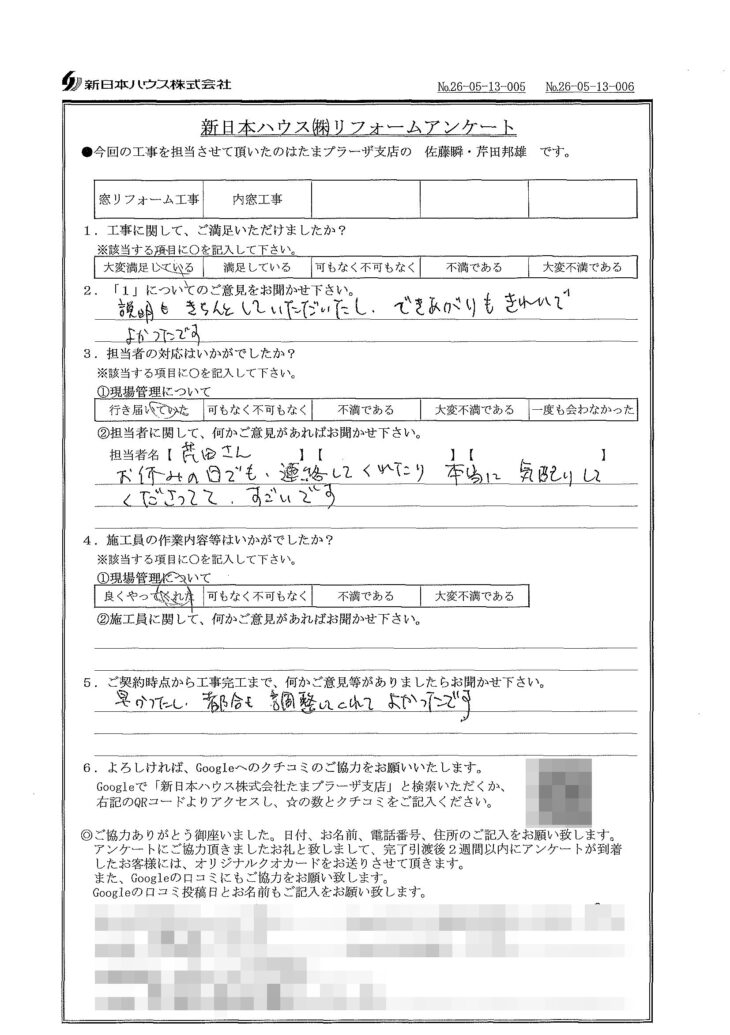 新日本ハウス株式会社 №26-05-13-005 №26-05-13-006
新日本ハウス㈱リフォームアンケート
●今回の工事を担当させて頂いたのはたまプラーザ支店の 佐藤瞬・芹田邦雄 です。
窓リフォーム工事 内窓工事
1．工事に関して、ご満足いただけましたか？
※該当する項目に○を記入して下さい。
大変満足している 満足している 可もなく不可もなく 不満である 大変不満である
2．「1」についてのご意見をお聞かせ下さい。
説明もきちんとしていただいたし、できあがりもきれいで
よかったです
3．担当者の対応はいかがでしたか？
※該当する項目に○を記入して下さい。
①現場管理について
行き届いていた 可もなく不可もなく 不満である 大変不満である 一度も会わなかった
②担当者に関して、何かご意見があればお聞かせ下さい。
担当者名【 芹田さん 】【 】【 】
お休みの日でも、連絡してくれたり 本当に 気配りして
くださってて、すごいです
4．施工員の作業内容等はいかがでしたか？
※該当する項目に○を記入して下さい。
①現場管理について
良くやってくれた 可もなく不可もなく 不満である 大変不満である
②施工員に関して、何かご意見があればお聞かせ下さい。
5．ご契約時点から工事完工まで、何かご意見等がありましたらお聞かせ下さい。
早かったし、都合も調整してくれてよかったです
6．よろしければ、Googleへのクチコミのご協力をお願いいたします。
Googleで「新日本ハウス株式会社たまプラーザ支店」と検索いただくか、
右記のQRコードよりアクセスし、☆の数とクチコミをご記入ください。
◎ご協力ありがとう御座いました。日付、お名前、電話番号、住所のご記入をお願い致します。
アンケートにご協力頂きましたお礼と致しまして、完了引渡後２週間以内にアンケートが到着
したお客様には、オリジナルクオカードをお送りさせて頂きます。
また、Googleの口コミにもご協力をお願い致します。
Googleの口コミ投稿日とお名前もご記入をお願い致します。